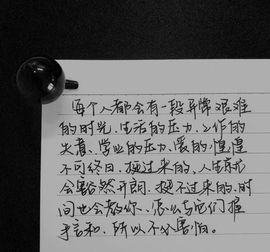 每个人都会有一段异常艰难
的时光，生活的压力，工作的
失意，学业的压力，爱的惶惶
不可终日，挺过来的，人生就
会豁然开朗，挺不过来的，时
间也会教你，怎么与它们握
手言和，所以不必害怕。